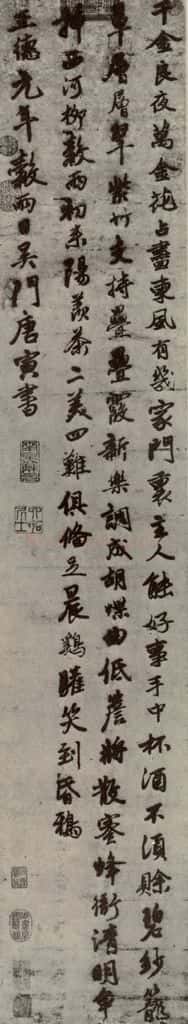 千金良夜萬金花占盡東風有幾家門裏主人能好事手中杯酒不須賒碧紗籠
罩層層翠紫竹支持疊疊霞新樂調成胡蝶曲低簷將散蜜蜂衙清明爭
插西河柳穀雨初來陽羨茶二美四難俱備足晨鷄懽笑到昏鴉
正德元年穀雨日吳門唐寅書
六如居士